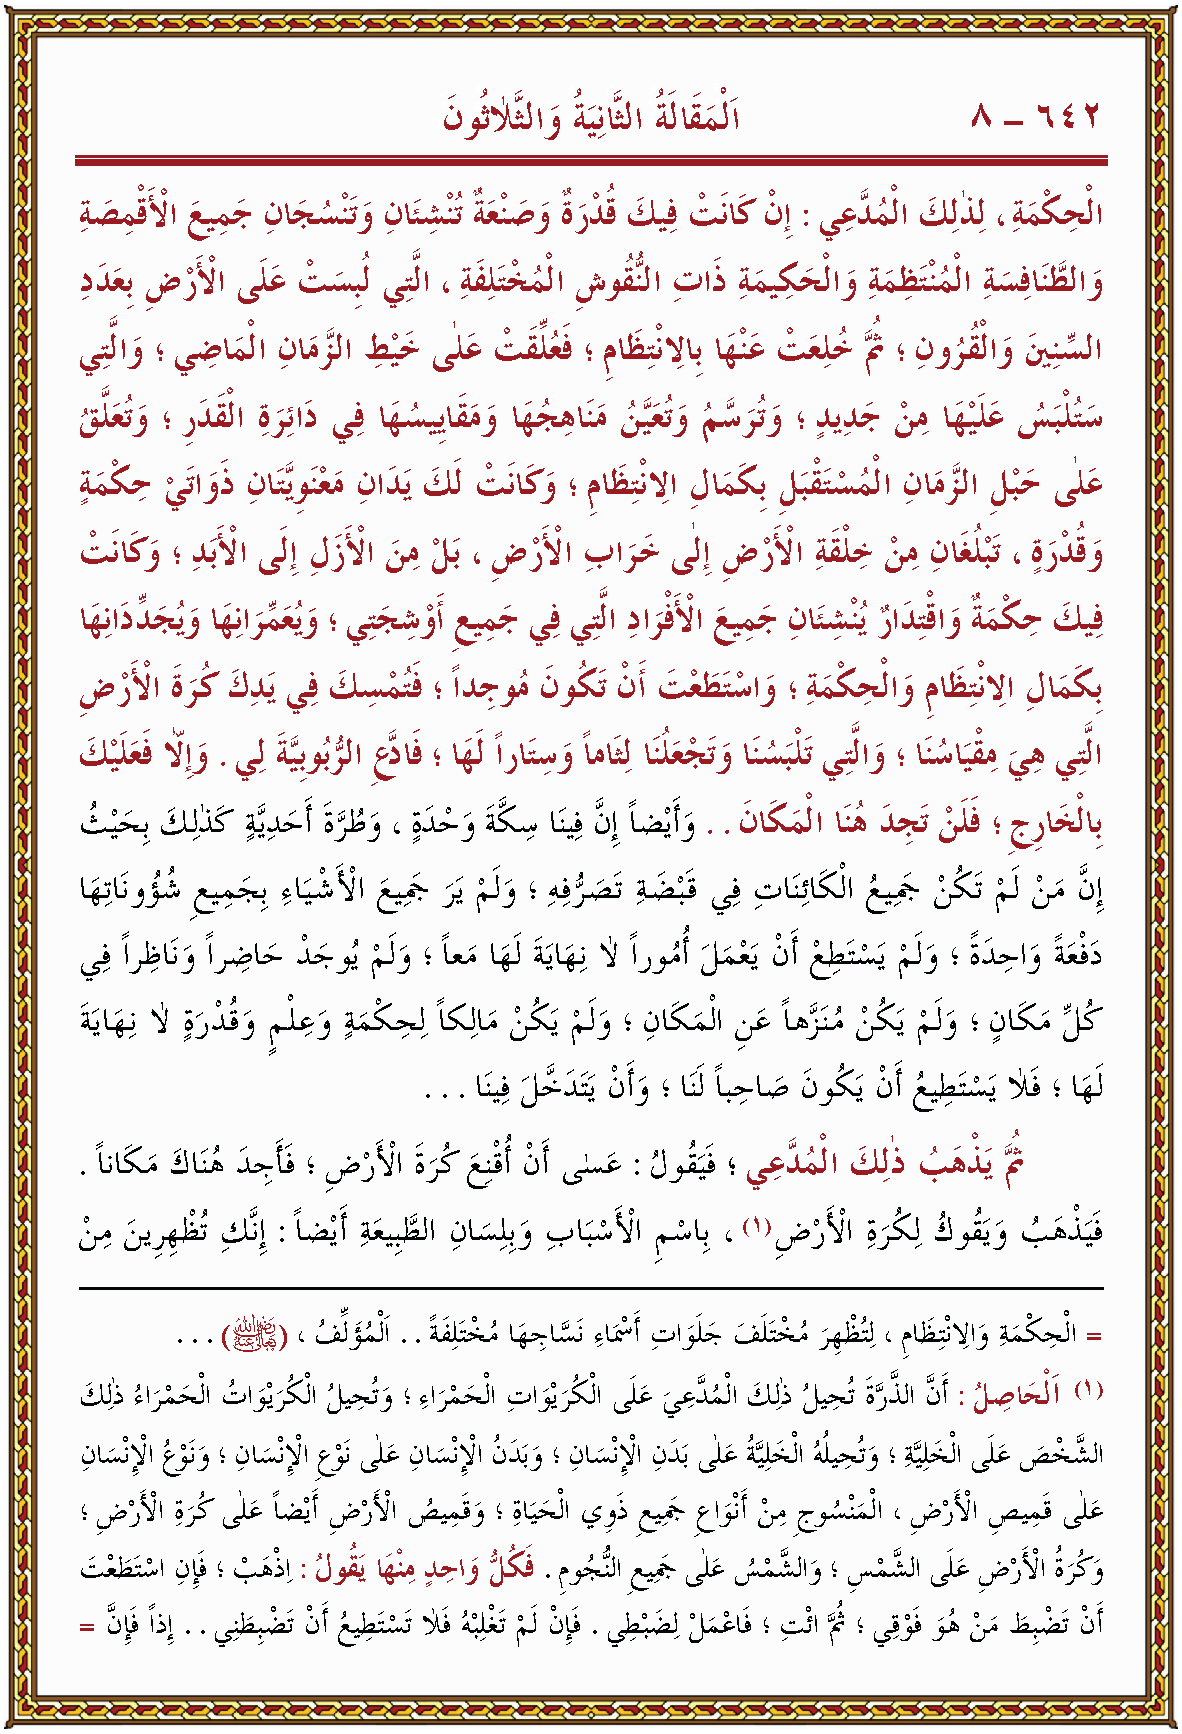 ٦٤٢ – ٨ اَلْمَقَالَةُ الثَّانِيَةُ وَالثَّلاٰثُونَ
الْحِكْمَةِ ، لِذٰلِكَ الْمُدَّعِي : إِنْ كَانَتْ فِيكَ قُدْرَةٌ وَصَنْعَةٌ تُنْشِئَانِ وَتَنْسُجَانِ جَمِيعَ الْأَقْمِصَةِ
وَالطَّنَافِسَةِ الْمُنْتَظِمَةِ وَالْحَكِيمَةِ ذَاتِ النُّقُوشِ الْمُخْتَلِفَةِ ، الَّتِي لُبِسَتْ عَلَى الْأَرْضِ بِعَدَدِ
السِّنِينَ وَالْقُرُونِ ؛ ثُمَّ خُلِعَتْ عَنْهَا بِالِانْتِظَامِ ؛ فَعُلِّقَتْ عَلٰى خَيْطِ الزَّمَانِ الْمَاضِي ؛ وَالَّتِي
سَتُلْبَسُ عَلَيْهَا مِنْ جَدِيدٍ ؛ وَتُرَسَّمُ وَتُعَيَّنُ مَنَاهِجُهَا وَمَقَايِيسُهَا فِي دَائِرَةِ الْقَدَرِ ؛ وَتُعَلَّقُ
عَلٰى حَبْلِ الزَّمَانِ الْمُسْتَقْبَلِ بِكَمَالِ الِانْتِظَامِ ؛ وَكَانَتْ لَكَ يَدَانِ مَعْنَوِيَّتَانِ ذَوَاتَيْ حِكْمَةٍ
وَقُدْرَةٍ ، تَبْلُغَانِ مِنْ خِلْقَةِ الْأَرْضِ إِلٰى خَرَابِ الْأَرْضِ ، بَلْ مِنَ الْأَزَلِ إِلَى الْأَبَدِ ؛ وَكَانَتْ
فِيكَ حِكْمَةٌ وَاقْتِدَارٌ يُنْشِئَانِ جَمِيعَ الْأَفْرَادِ الَّتِي فِي جَمِيعِ أَوْشِجَتِي ؛ وَيُعَمِّرَانِهَا وَيُجَدِّدَانِهَا
بِكَمَالِ الِانْتِظَامِ وَالْحِكْمَةِ ؛ وَاسْتَطَعْتَ أَنْ تَكُونَ مُوجِداً ؛ فَتُمْسِكَ فِي يَدِكَ كُرَةَ الْأَرْضِ
الَّتِي هِيَ مِقْيَاسُنَا ؛ وَالَّتِي تَلْبَسُنَا وَتَجْعَلُنَا لِثَاماً وَسِتَاراً لَهَا ؛ فَادَّعِ الرُّبُوبِيَّةَ لِي . وَإِلاّٰ فَعَلَيْكَ
بِالْخَارِجِ ؛ فَلَنْ تَجِدَ هُنَا الْمَكَانَ . . وَأَيْضاً إِنَّ فِينَا سِكَّةَ وَحْدَةٍ ، وَطُرَّةَ أَحَدِيَّةٍ كَذٰلِكَ بِحَيْثُ
إِنَّ مَنْ لَمْ تَكُنْ جَمِيعُ الْكَائِنَاتِ فِي قَبْضَةِ تَصَرُّفِهِ ؛ وَلَمْ يَرَ جَمِيعَ الْأَشْيَاءِ بِجَمِيعِ شُؤُونَاتِهَا
دَفْعَةً وَاحِدَةً ؛ وَلَمْ يَسْتَطِعْ أَنْ يَعْمَلَ أُمُوراً لاٰ نِهَايَةَ لَهَا مَعاً ؛ وَلَمْ يُوجَدْ حَاضِراً وَنَاظِراً فِي
كُلِّ مَكَانٍ ؛ وَلَمْ يَكُنْ مُنَزَّهاً عَنِ الْمَكَانِ ؛ وَلَمْ يَكُنْ مَالِكاً لِحِكْمَةٍ وَعِلْمٍ وَقُدْرَةٍ لاٰ نِهَايَةَ
لَهَا ؛ فَلاٰ يَسْتَطِيعُ أَنْ يَكُونَ صَاحِباً لَنَا ؛ وَأَنْ يَتَدَخَّلَ فِينَا . . .
ثُمَّ يَذْهَبُ ذٰلِكَ الْمُدَّعِي ؛ فَيَقُولُ : عَسٰى أَنْ أُقْنِعَ كُرَةَ الْأَرْضِ ؛ فَأَجِدَ هُنَاكَ مَكَاناً .
فَيَذْهَبُ وَيَقُوكُ لِكُرَةِ الْأَرْضِ(١) ، بِاسْمِ الْأَسْبَابِ وَبِلِسَانِ الطَّبِيعَةِ أَيْضاً : إِنَّكِ تُظْهِرِينَ مِنْ
= الْحِكْمَةِ وَالِانْتِظَامِ ، لِتُظْهِرَ مُخْتَلَفَ جَلَوَاتِ أَسْمَاءِ نَسَّاجِهَا مُخْتَلِفَةً . . اَلْمُؤَلِّفُ ، (رضي الله عنه) . . .
(١) اَلْحَاصِلُ : أَنَّ الذَّرَّةَ تُحِيلُ ذٰلِكَ الْمُدَّعِيَ عَلَى الْكُرَيْوَاتِ الْحَمْرَاءِ ؛ وَتُحِيلُ الْكُرَيْوَاتُ الْحَمْرَاءُ ذٰلِكَ
الشَّخْصَ عَلَى الْخَلِيَّةِ ؛ وَتُحِيلُهُ الْخَلِيَّةُ عَلٰى بَدَنِ الْإِنْسَانِ ؛ وَبَدَنُ الْإِنْسَانِ عَلٰى نَوْعِ الْإِنْسَانِ ؛ وَنَوْعُ الْإِنْسَانِ
عَلٰى قَمِيصِ الْأَرْضِ ، الْمَنْسُوجِ مِنْ أَنْوَاعِ جَمِيعِ ذَوِي الْحَيَاةِ ؛ وَقَمِيصُ الْأَرْضِ أَيْضاً عَلٰى كُرَةِ الْأَرْضِ ؛
وَكُرَةُ الْأَرْضِ عَلَى الشَّمْسِ ؛ وَالشَّمْسُ عَلٰى جَمِيعِ النُّجُومِ . فَكُلُّ وَاحِدٍ مِنْهَا يَقُولُ : اِذْهَبْ ؛ فَإِنِ اسْتَطَعْتَ
أَنْ تَضْبِطَ مَنْ هُوَ فَوْقِي ؛ ثُمَّ ائْتِ ؛ فَاعْمَلْ لِضَبْطِي . فَإِنْ لَمْ تَغْلِبْهُ فَلاٰ تَسْتَطِيعُ أَنْ تَضْبِطَنِي . . إِذاً فَإِنَّ =